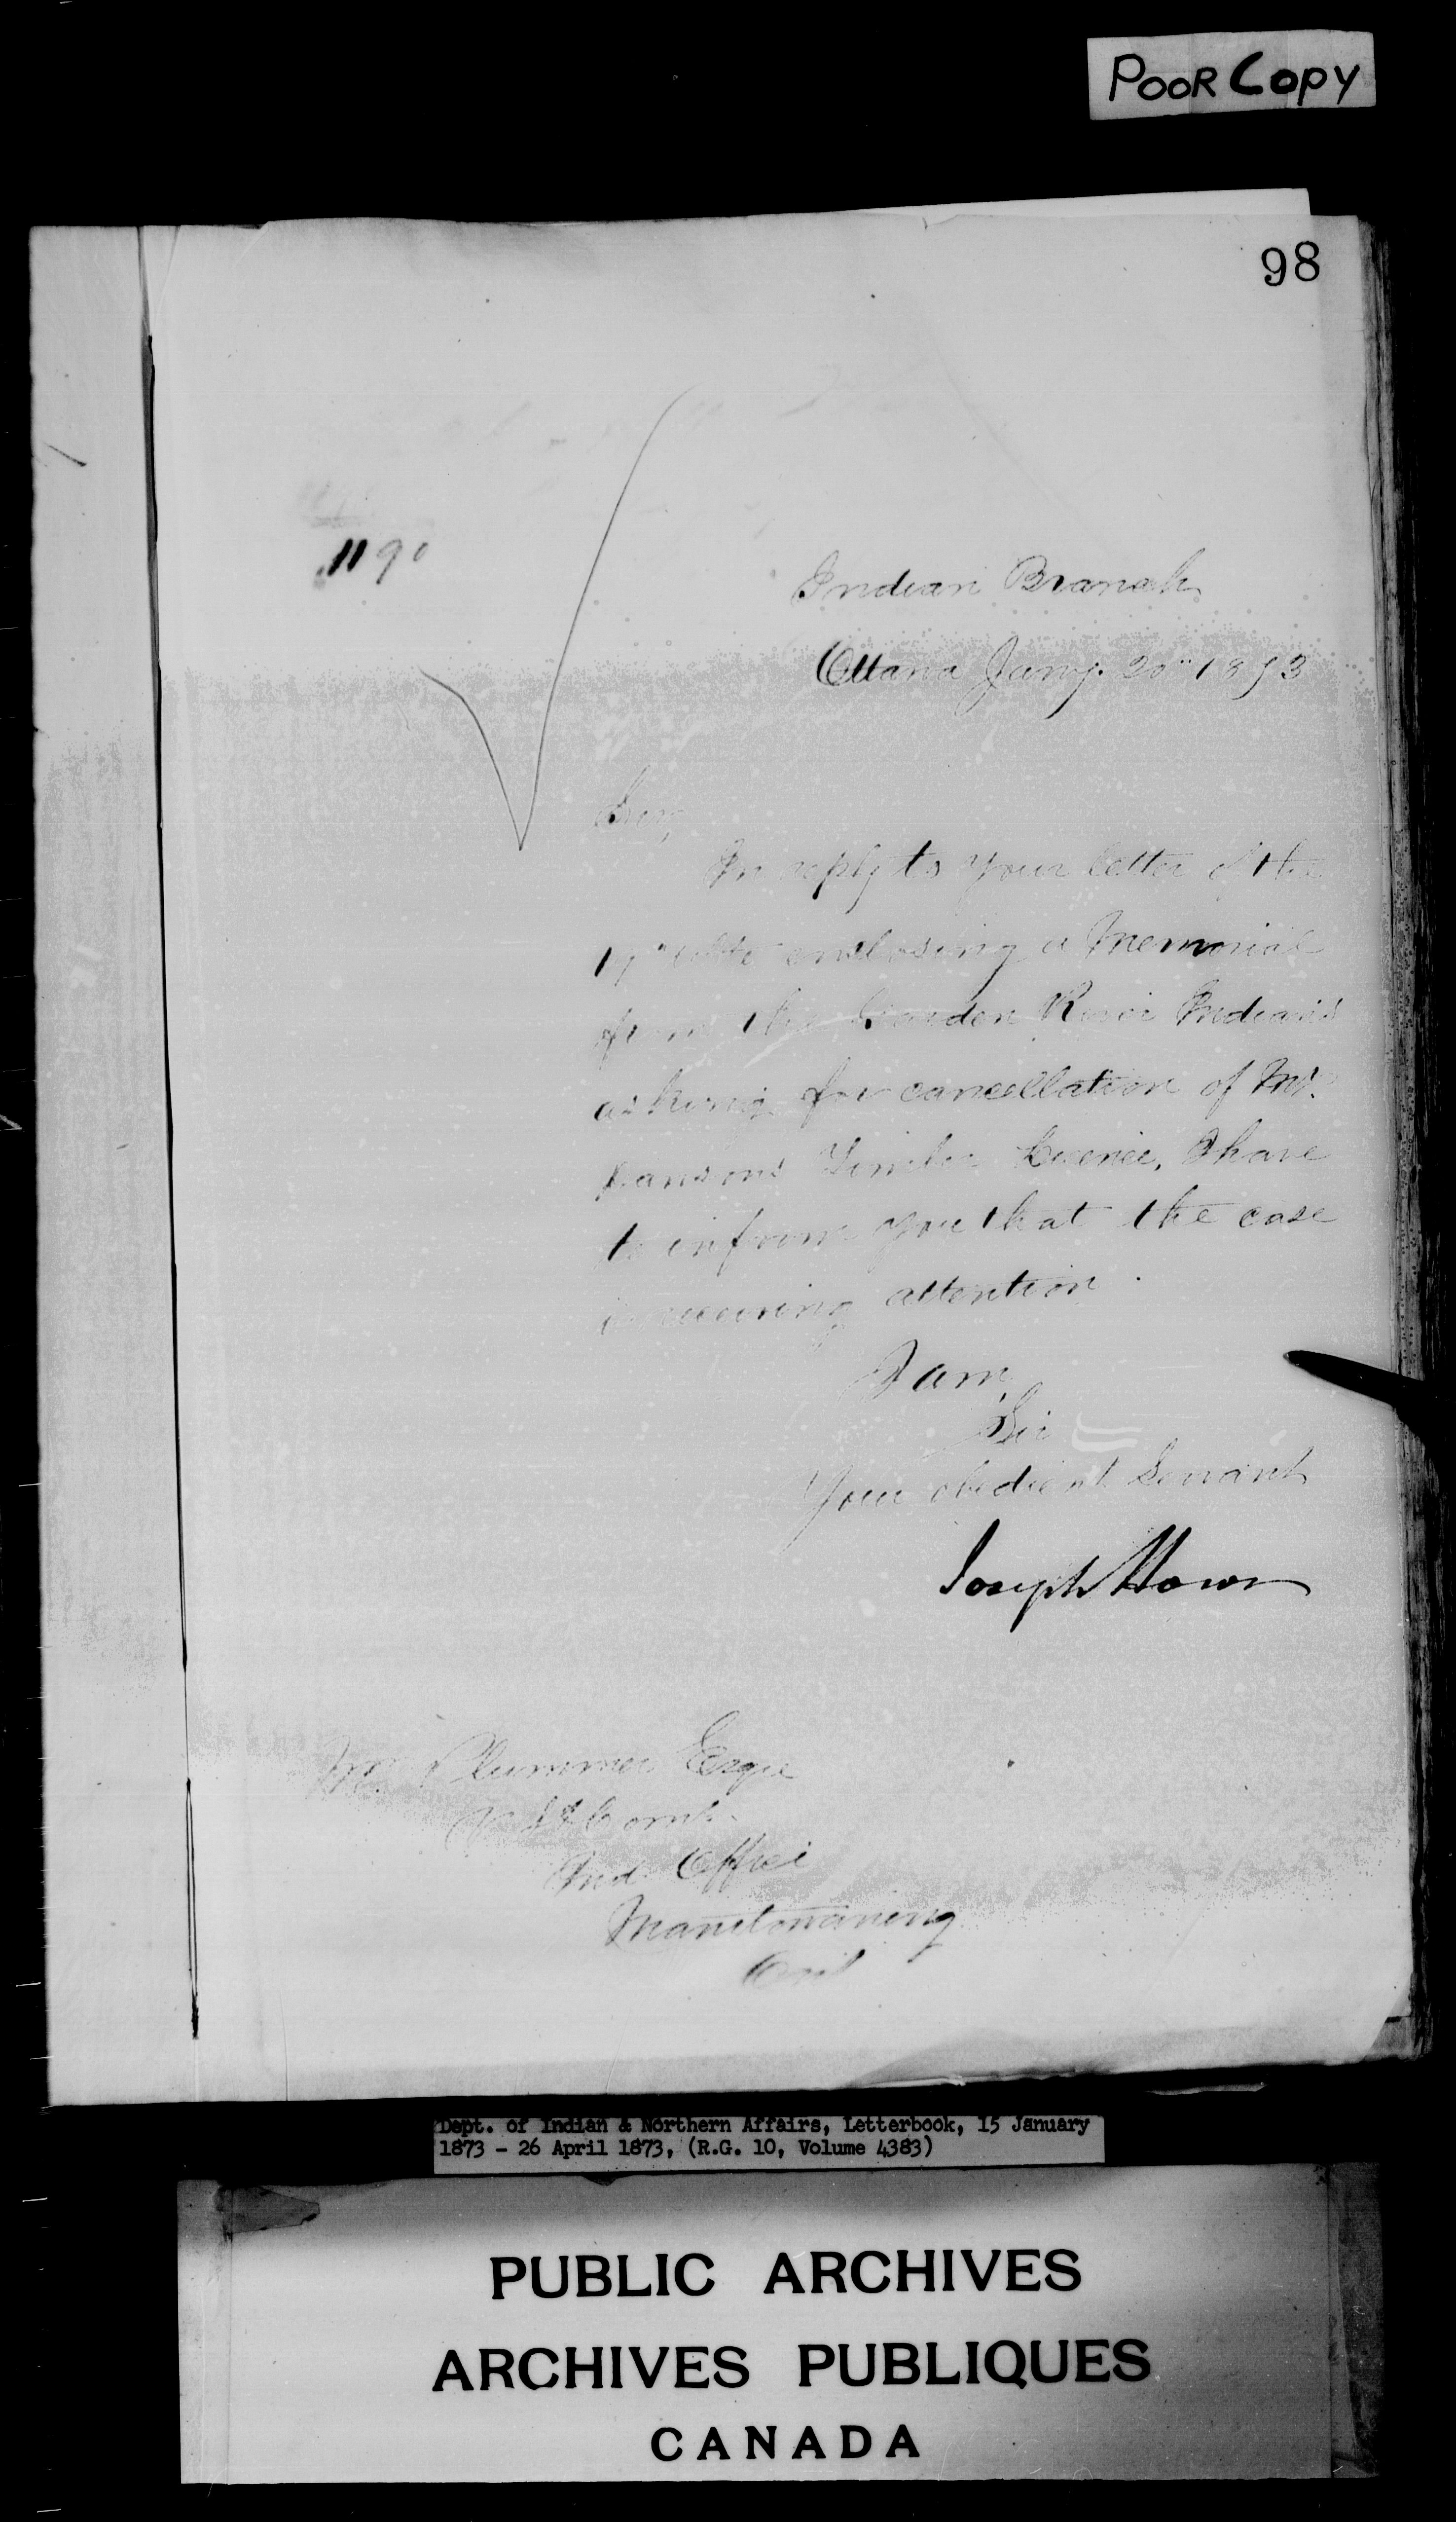 POOR COPY
98
1190
Indian Branch
Ottawa Jany. 20th 1873
Sir,
In reply to your letter of the
enclosing a Memorial
from the Garden River Indians
asking for cancellation of Mr.
Timber License, I have
to inform you that the case
is receiving attention.
I am,
Sir
Your obedient Servant
Joseph Howe
Wm Plummer Esqre
Ind. Office
Manitowaning
Ont
Dept. of Indian & Northern Affairs, Letterbook, 15 January
1873 - 26 April 1873, (R.G. 10, Volume 4383)
PUBLIC ARCHIVES
ARCHIVES PUBLIQUES
CANADA